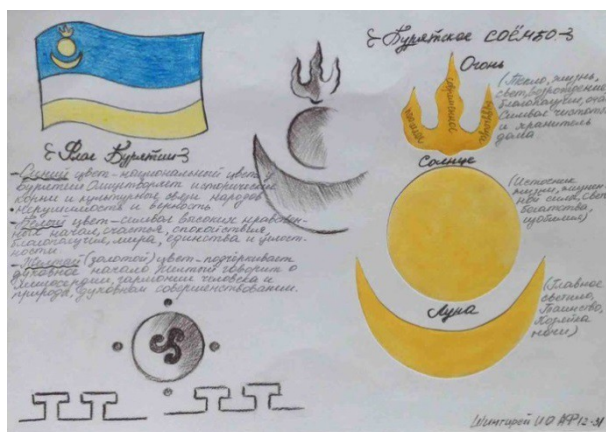 Флаг Бурятии
- Синий цвет – национальный цвет
бурятии Олицетворяет исторические
корни и культурные связи народов
• Нерушимость и верность
- Белый цвет – символ высоких нравствен-
ных начал, счастья, спокойствия
благополучия, мира, единства и целост-
ности
- Желтый (золотой) цвет – подчёркивает
духовное начало Желтый говорит о
милосердии, гармонии человека и
природы, духовном совершенствовании.
Бурятское СОЁМБО
Огонь
(Тепло, жизнь,
свет, возрождение,
благополучие,
Символ чистоты
и хранитель
дома
прошлое
настоящее
будущее
Солнце
(Источник
жизни, жизнен-
ной силы, свет
богатства,
изобилия)
Луна
(Главное
светило,
Таинство,
Хозяйка
ночи)
АФ12-31